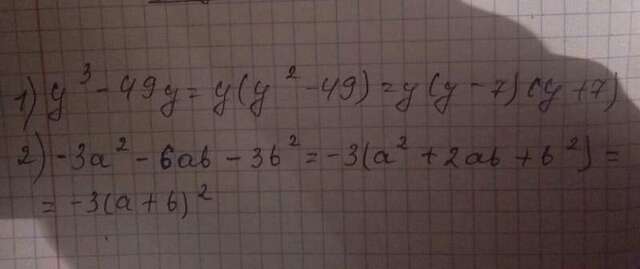 1) y³ - 49y = y(y² - 49) = y(y - 7)(y + 7)
2) -3a² - 6ab - 3b² = -3(a² + 2ab + b²) =
= -3(a + b)²